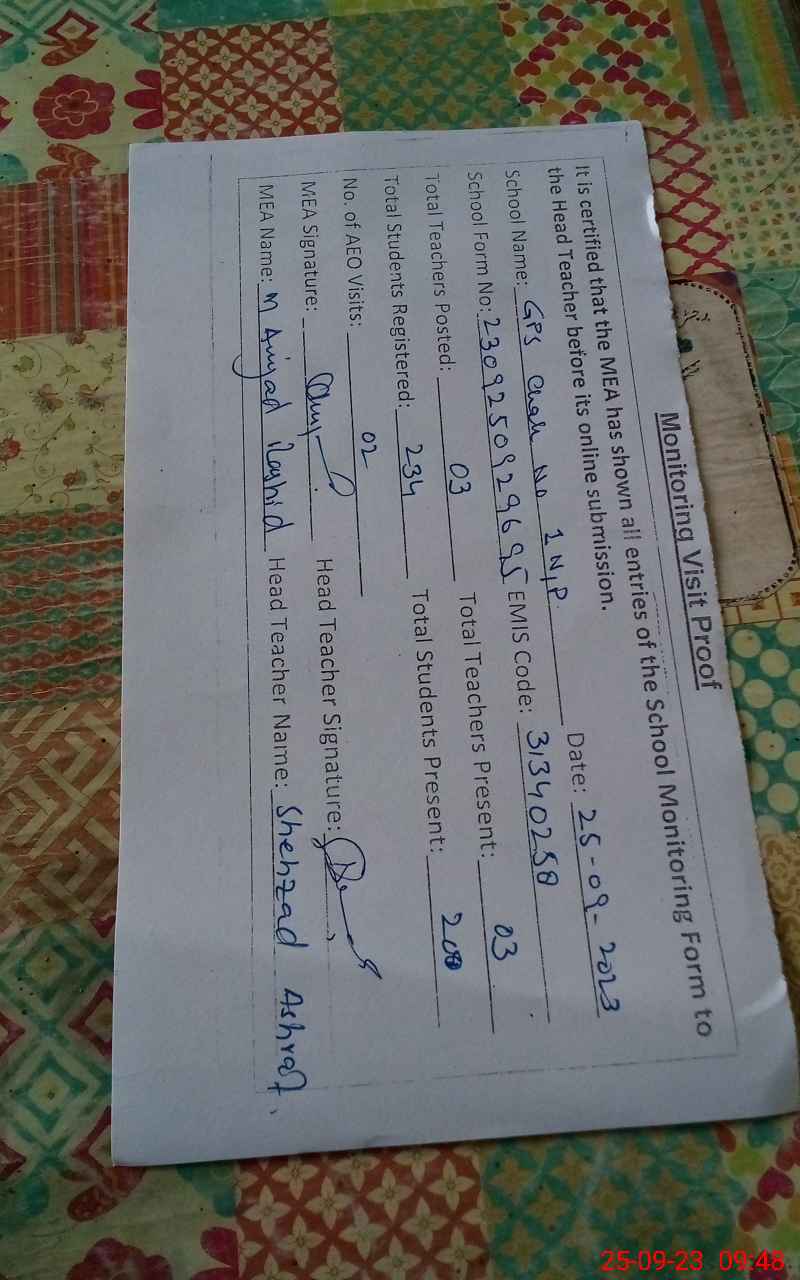 Monitoring Visit Proof
It is certified that the MEA has shown all entries of the School Monitoring Form to
the Head Teacher before its online submission.
Date: 25-09-2023
School Name: GPS Chak No 1 N,P.
School Form No: 2309250929695 EMIS Code: 31340258
Total Teachers Posted: 03 Total Teachers Present: 03
Total Students Registered: 234 Total Students Present: 200
No. of AEO Visits: 02
MEA Signature: Head Teacher Signature:
MEA Name: M Amjad Rashid Head Teacher Name: Shehzad Ashraf.
25-09-23 09:48